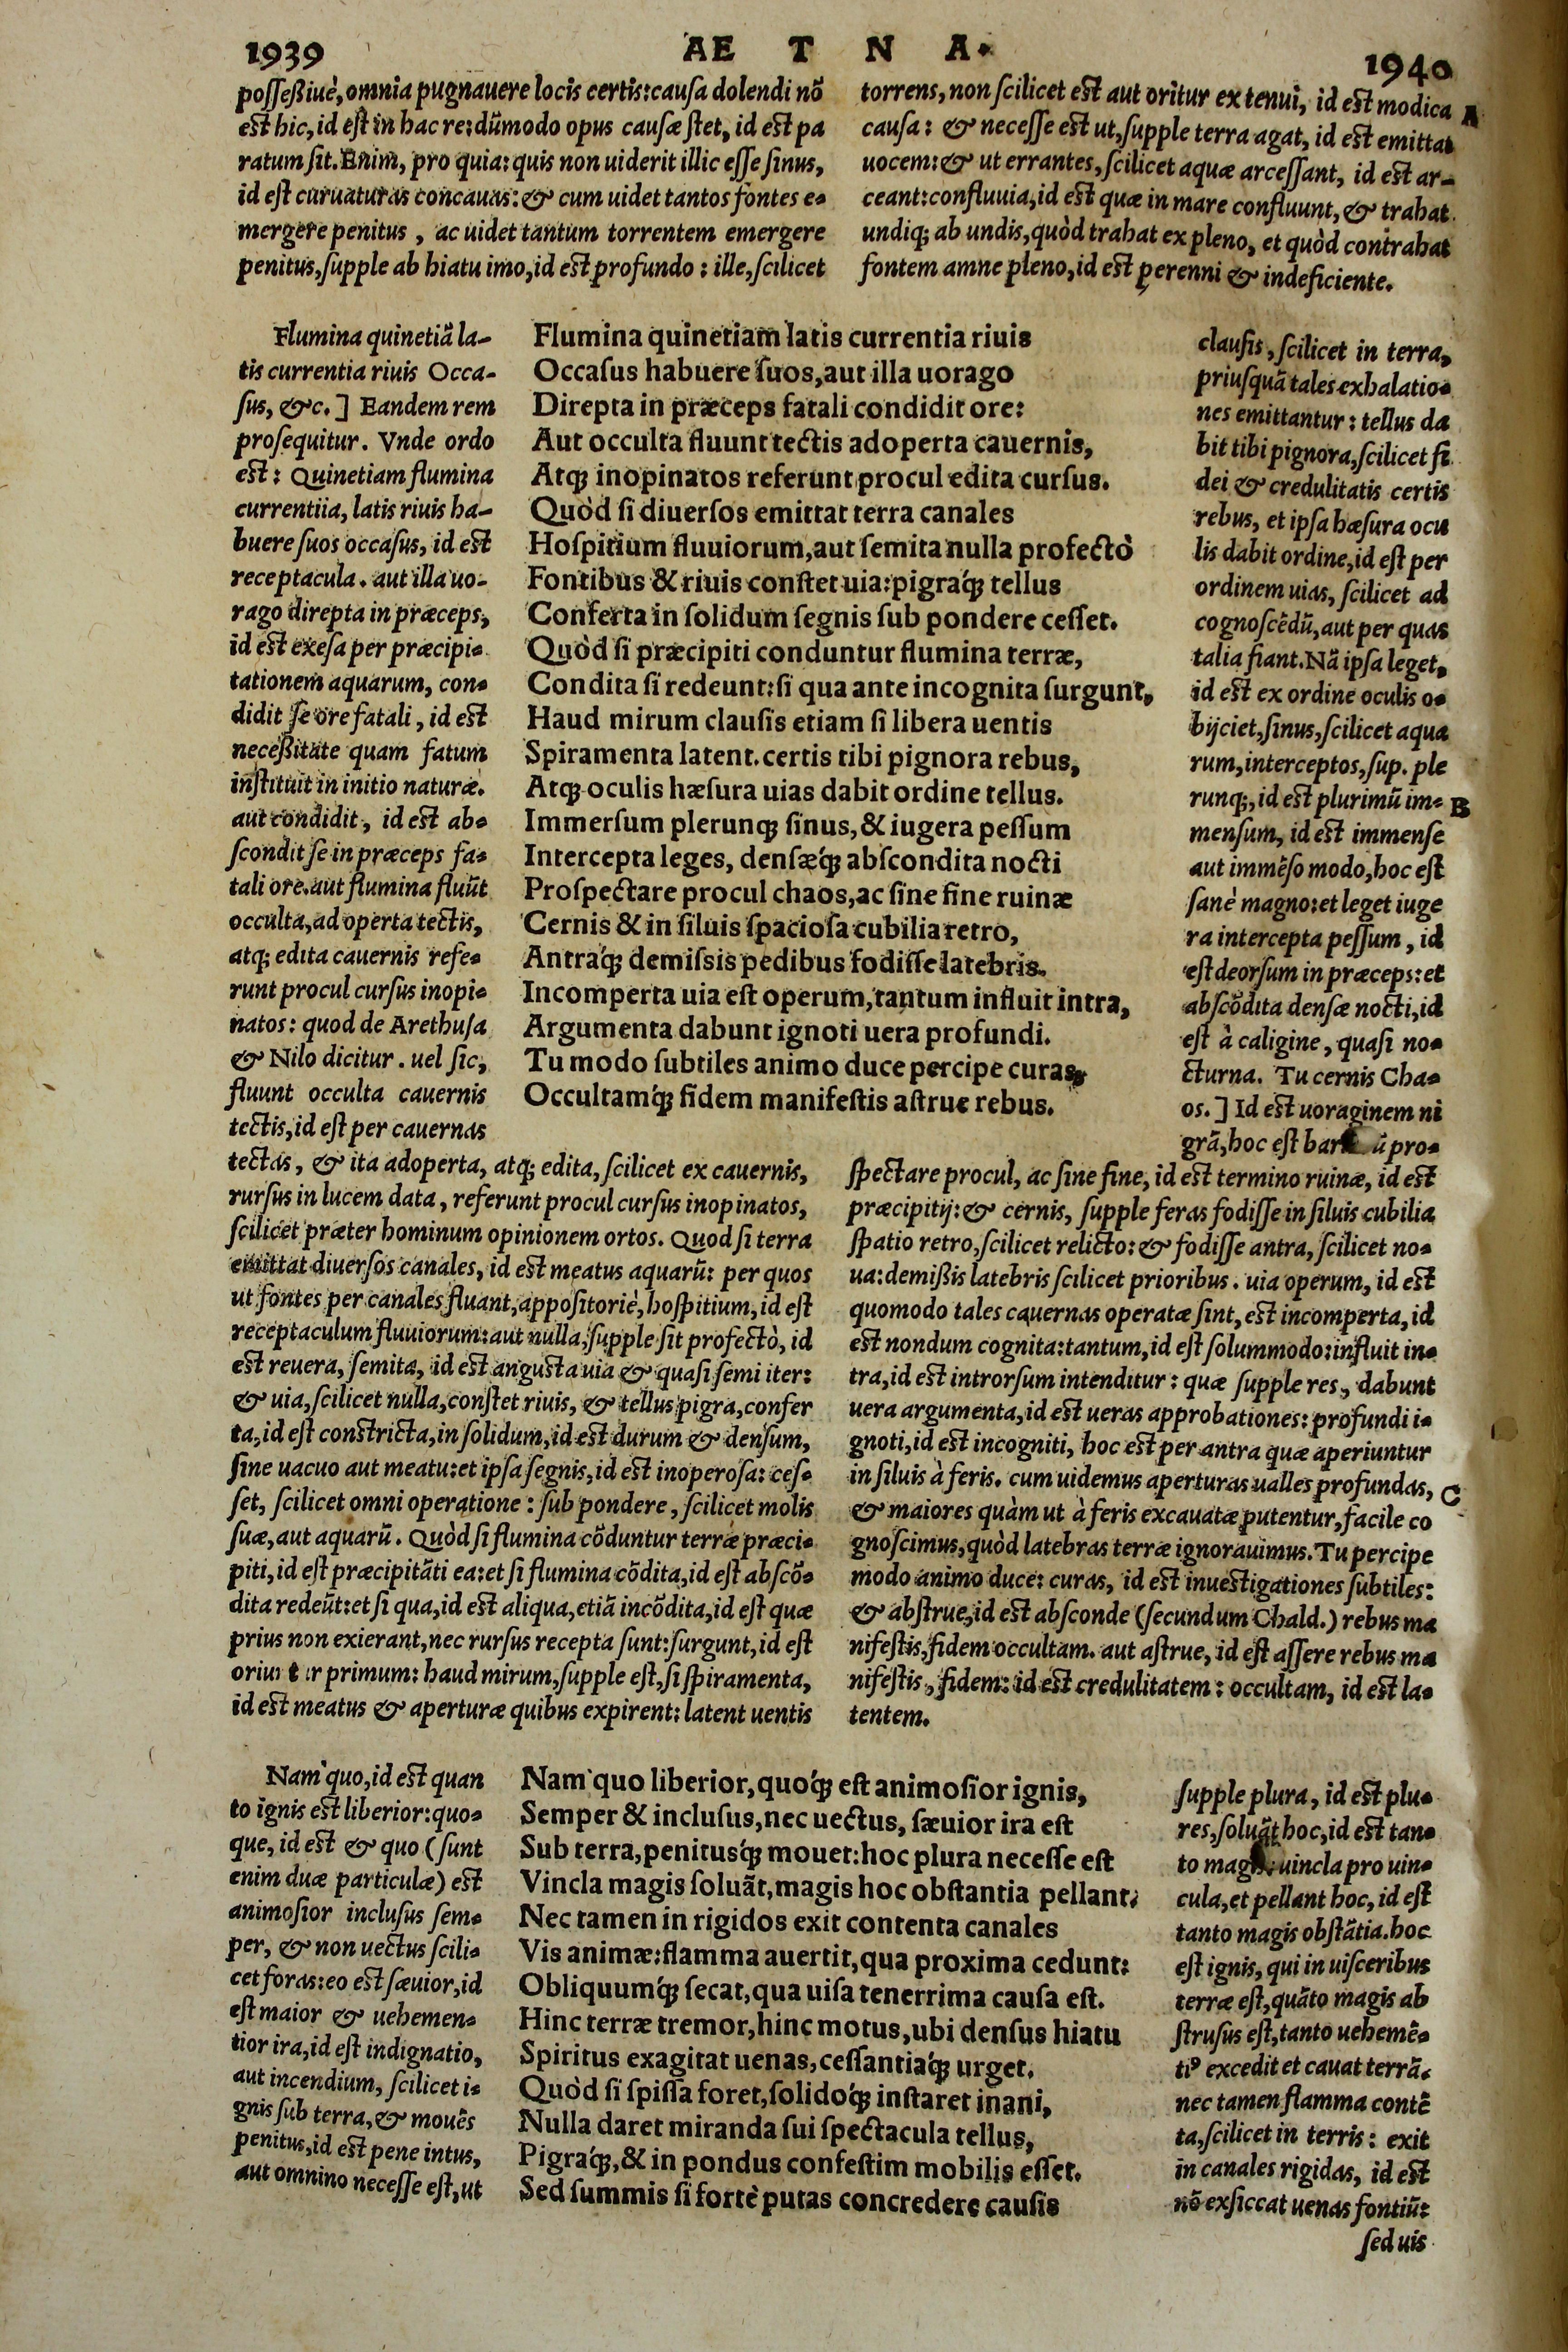 1939
AE T N A.
1940
poſſeßiuè, omnia pugnauere locis certis: cauſa dolendi nõ
eſt hic, id eſt in hac re: dũmodo opus cauſæ ſtet, id eſt pa
ratum ſit. Enim, pro quia: quis non uiderit illic eſſe ſinus,
id eſt curuaturas concauas: & cum uidet tantos fontes e-
mergere penitus, ac uidet tantum torrentem emergere
penitus, ſupple ab hiatu imo, id eſt profundo: ille, ſcilicet
torrens, non ſcilicet eſt aut oritur ex tenui, id eſt modica
A
cauſa: & neceſſe eſt ut, ſupple terra agat, id eſt emittat
uocem: & ut errantes, ſcilicet aquæ arceſſant, id eſt ar-
ceant: confluuia, id eſt quæ in mare confluunt, & trahat
undiq; ab undis, quòd trahat ex pleno, et quòd contrahat
fontem amne pleno, id eſt perenni & indeficiente.
Flumina quinetiã la-
tis currentia riuis Occa-
ſus, &c. ] Eandem rem
proſequitur. Vnde ordo
eſt: Quinetiam flumina
currentiia, latis riuis ha-
buere ſuos occaſus, id eſt
receptacula. aut illa uo-
rago direpta in præceps,
id eſt exeſa per præcipi-
tationem aquarum, con-
didit ſe ore fatali, id eſt
neceßitate quam fatum
inſtituit in initio naturæ.
aut condidit, id eſt ab-
ſcondit ſe in præceps fa-
tali ore. aut flumina fluũt
occulta, ad operta tectis,
atq; edita cauernis refe-
runt procul curſus inopi-
natos: quod de Arethuſa
& Nilo dicitur. uel ſic,
fluunt occulta cauernis
tectis, id eſt per cauernas
Flumina quinetiam latis currentia riuis
Occaſus habuere ſuos, aut illa uorago
Direpta in præceps fatali condidit ore:
Aut occulta fluunt tectis adoperta cauernis,
Atq; inopinatos referunt procul edita curſus.
Quòd ſi diuerſos emittat terra canales
Hoſpitium fluuiorum, aut ſemita nulla profectò
Fontibus & riuis conſtet uia: pigraq́; tellus
Conferta in ſolidum ſegnis ſub pondere ceſſet.
Quòd ſi præcipiti conduntur flumina terræ,
Condita ſi redeunt: ſi qua ante incognita ſurgunt,
Haud mirum clauſis etiam ſi libera uentis
Spiramenta latent. certis tibi pignora rebus,
Atq; oculis hæſura uias dabit ordine tellus.
Immerſum plerunq; ſinus, & iugera peſſum
Intercepta leges, denſæq́; abſcondita nocti
Proſpectare procul chaos, ac ſine fine ruinæ
Cernis & in ſiluis ſpacioſa cubilia retro,
Antraq́; demiſsis pedibus fodiſſe latebris.
Incomperta uia eſt operum, tantum influit intra,
Argumenta dabunt ignoti uera profundi.
Tu modo ſubtiles animo duce percipe curas,
Occultamq́; fidem manifeſtis aſtrue rebus.
clauſis, ſcilicet in terra,
priuſquã tales exhalatio-
nes emittantur: tellus da
bit tibi pignora, ſcilicet fi
dei & credulitatis certis
rebus, et ipſa hæſura ocu
lis dabit ordine, id eſt per
ordinem uias, ſcilicet ad
cognoſcẽdũ, aut per quas
talia fiant. Nã ipſa leget,
id eſt ex ordine oculis o-
bijciet, ſinus, ſcilicet aqua
rum, interceptos, ſup. ple
runq;, id eſt plurimũ im-
B
menſum, id eſt immenſe
aut immẽſo modo, hoc eſt
ſanè magno: et leget iuge
ra intercepta peſſum, id
eſt deorſum in præceps: et
abſcõdita denſæ nocti, id
eſt à caligine, quaſi no-
cturna. Tu cernis Cha-
os. ] Id eſt uoraginem ni
grã, hoc eſt ũ pro-
tectas, & ita adoperta, atq; edita, ſcilicet ex cauernis,
rurſus in lucem data, referunt procul curſus inopinatos,
ſcilicet præter hominum opinionem ortos. Quod ſi terra
emittat diuerſos canales, id eſt meatus aquarũ: per quos
ut fontes per canales fluant, appoſitoriè, hoſpitium, id eſt
receptaculum fluuiorum: aut nulla, ſupple ſit profectò, id
eſt reuera, ſemita, id eſt anguſta uia & quaſi ſemi iter:
& uia, ſcilicet nulla, conſtet riuis, & tellus pigra, confer
ta, id eſt conſtricta, in ſolidum, id eſt durum & denſum,
ſine uacuo aut meatu: et ipſa ſegnis, id eſt inoperoſa: ceſ-
ſet, ſcilicet omni operatione: ſub pondere, ſcilicet molis
ſuæ, aut aquarũ. Quòd ſi flumina cõduntur terræ præci-
piti, id eſt præcipitãti ea: et ſi flumina cõdita, id eſt abſcõ-
dita redeũt: et ſi qua, id eſt aliqua, etiã incõdita, id eſt quæ
prius non exierant, nec rurſus recepta ſunt: ſurgunt, id eſt
primum: haud mirum, ſupple eſt, ſi ſpiramenta,
id eſt meatus & aperturæ quibus expirent: latent uentis
ſpectare procul, ac ſine fine, id eſt termino ruinæ, id eſt
præcipitij: & cernis, ſupple feras fodiſſe in ſiluis cubilia
ſpatio retro, ſcilicet relicto: & fodiſſe antra, ſcilicet no-
ua: demißis latebris ſcilicet prioribus. uia operum, id eſt
quomodo tales cauernas operatæ ſint, eſt incomperta, id
eſt nondum cognita: tantum, id eſt ſolummodo: influit in-
tra, id eſt introrſum intenditur: quæ ſupple res, dabunt
uera argumenta, id eſt ueras approbationes: profundi i-
gnoti, id eſt incogniti, hoc eſt per antra quæ aperiuntur
in ſiluis à feris. cum uidemus aperturas ualles profundas,
C
& maiores quàm ut à feris excauatæ putentur, facile co
gnoſcimus, quòd latebras terræ ignorauimus. Tu percipe
modo animo duce: curas, id eſt inueſtigationes ſubtiles:
& abſtrue, id eſt abſconde (ſecundum Chald.) rebus ma
nifeſtis, fidem occultam. aut aſtrue, id eſt aſſere rebus ma
nifeſtis, fidem: id eſt credulitatem: occultam, id eſt la-
tentem.
Nam quo, id eſt quan
to ignis eſt liberior: quo-
que, id eſt & quo (ſunt
enim duæ particulæ) eſt
animoſior incluſus ſem-
per, & non uectus ſcili-
cet foras: eo eſt ſæuior, id
eſt maior & uehemen-
tior ira, id eſt indignatio,
aut incendium, ſcilicet i-
gnis ſub terra, & mouẽs
penitus, id eſt pene intus,
aut omnino neceſſe eſt, ut
Nam quo liberior, quoq́; eſt animoſior ignis,
Semper & incluſus, nec uectus, ſæuior ira eſt
Sub terra, penitusq́; mouet: hoc plura neceſſe eſt
Vincla magis ſoluãt, magis hoc obſtantia pellant.
Nec tamen in rigidos exit contenta canales
Vis animæ: flamma auertit, qua proxima cedunt:
Obliquumq́; ſecat, qua uiſa tenerrima cauſa eſt.
Hinc terræ tremor, hinc motus, ubi denſus hiatu
Spiritus exagitat uenas, ceſſantiaq́; urget.
Quòd ſi ſpiſſa foret, ſolidoq́; inſtaret inani,
Nulla daret miranda ſui ſpectacula tellus,
Pigraq́;, & in pondus confeſtim mobilis eſſet.
Sed ſummis ſi fortè putas concredere cauſis
ſupple plura, id eſt plu-
res, ſoluãt hoc, id eſt tan-
to uincla pro uin-
cula, et pellant hoc, id eſt
tanto magis obſtãtia. hoc
eſt ignis, qui in uiſceribus
terræ eſt, quãto magis ab
ſtruſus eſt, tanto uehemẽ-
tiꝰ excedit et cauat terrã.
nec tamen flamma contẽ
ta, ſcilicet in terris: exit
in canales rigidas, id eſt
nõ exſiccat uenas fontiũ:
ſed uis